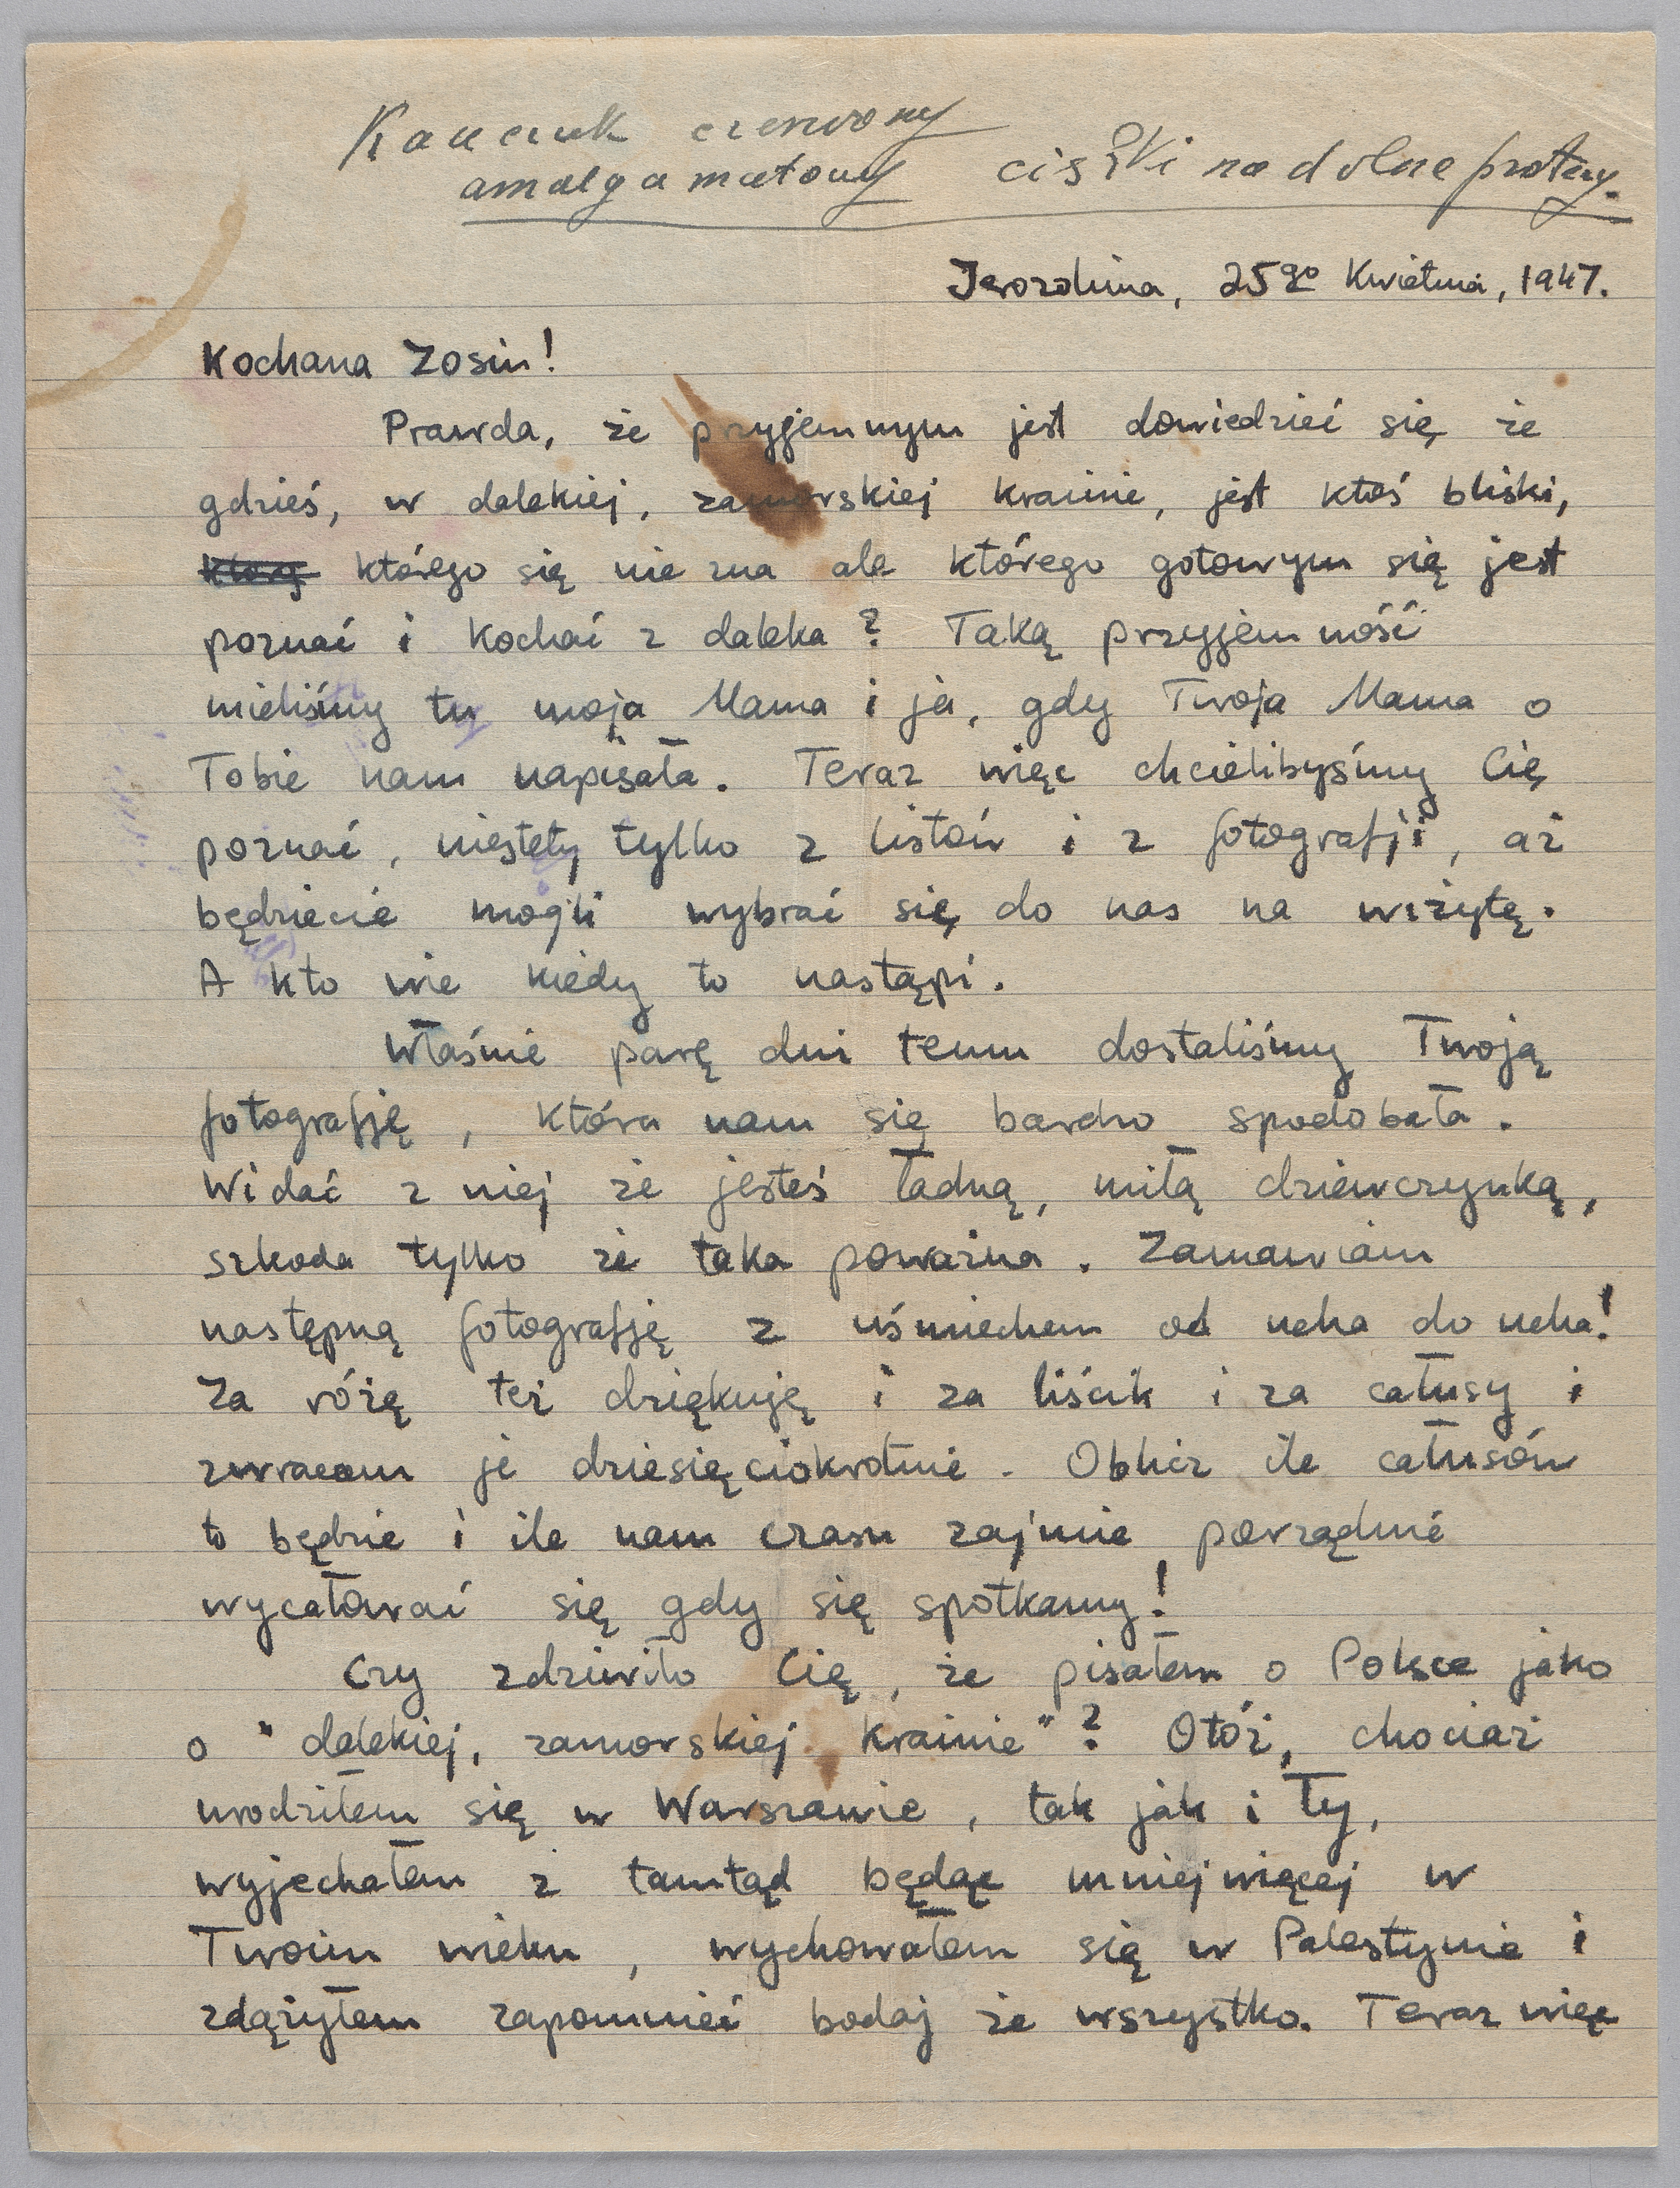 Kauczuk czerwony
amalgamatowy ciężki na dolne protezy.
Jerozolima, 25go Kwietnia, 1947.
Kochana Zosiu!
Prawda, że przyjemnym jest dowiedzieć się że
gdzieś, w dalekiej, zamorskiej krainie, jest ktoś bliski,
którego się nie zna ale którego gotowym się jest
poznać i kochać z daleka? Taką przyjemność
mieliśmy tu moja Mama i ja, gdy Twoja Mama o
Tobie nam napisała. Teraz więc chcielibyśmy Cię
poznać, niestety tylko z listów i z fotografji, aż
będziecie mogli wybrać się do nas na wizytę.
A kto wie kiedy to nastąpi.
Właśnie parę dni temu dostaliśmy Twoją
fotografję, która nam się bardzo spodobała.
Widać z niej że jesteś ładną, miłą dziewczynką,
szkoda tylko że taka poważna. Zamawiam
następną fotografję z uśmiechem od ucha do ucha!
Za różę też dziękuję i za liścik i za całusy i
zwracam je dziesięciokrotnie. Oblicz ile całusów
to będzie i ile nam czasu zajmie porządnie
wycałować się gdy się spotkamy!
Czy zdziwiło Cię, że pisałem o Polsce jako
o "dalekiej, zamorskiej krainie"? Otóż, chociaż
urodziłem się w Warszawie, tak jak i Ty,
wyjechałem z tamtąd będąc mniejwięcej w
Twoim wieku, wychowałem się w Palestynie i
zdążyłem zapomnieć bodaj że wszystko. Teraz więc